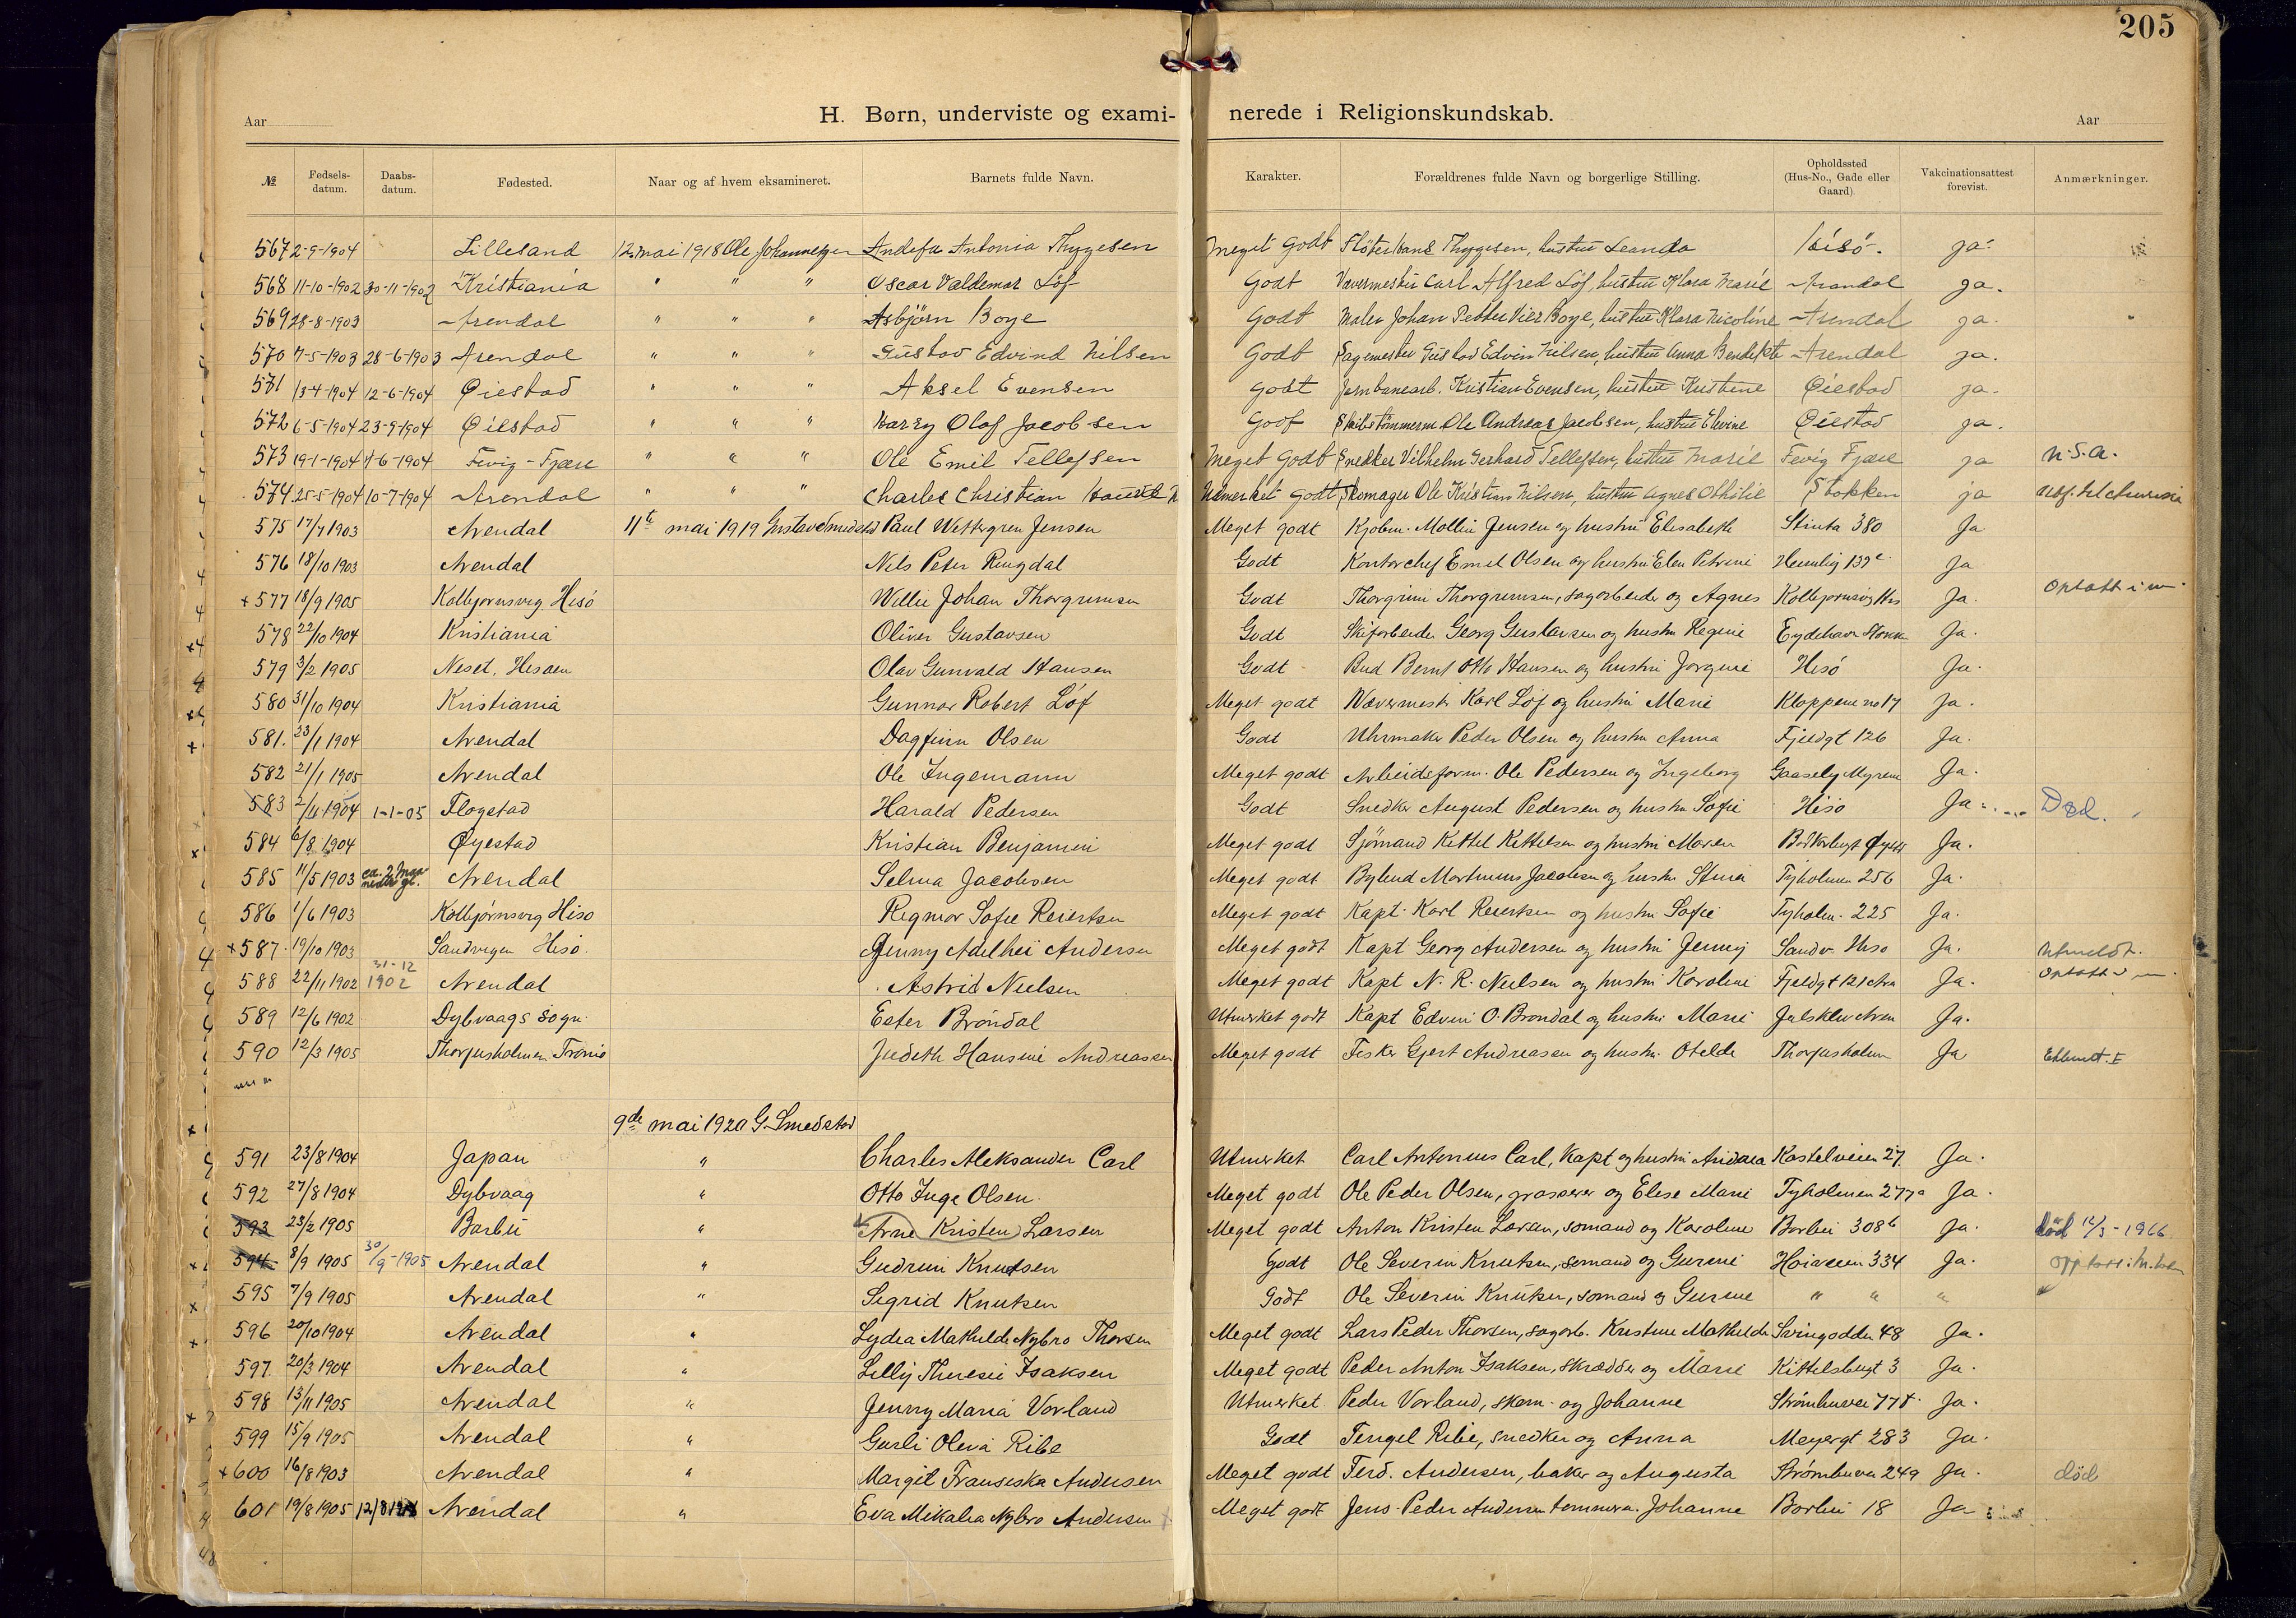 205
Aar H. Børn, underviste og exami- nerede i Religionskundskab. Aar
№ Fødsels-datum. Daabs-datum. Fødested. Naar og af hvem eksamineret. Barnets fulde Navn. Karakter. Forældrenes fulde Navn og borgerlige Stilling. Opholdssted (Hus-No., Gade eller Gaard). Vakcinationsattest forevist. Anmærkninger.
567 2-9-1904 Lillesand 12 mai 1918 Ole Johannesen Antonia Thygesen Meget Godt Thygesen, hustru Leanda Hisö. ja.
568 11-10-1902 30-11-1902 Kristiania " " " Oscar Valdemar Löf Godt Vævermester Carl Alfred Löf, hustru Klara Marie Arendal ja.
569 28-8-1903 Arendal " " " Asbjörn Boye Godt Maler Johan Petter Boye, hustru Klara Nicoline Arendal ja.
570 7-5-1903 28-6-1903 Arendal " " " Gustav Edvind Nilsen Godt Sagemester Gustav Edvin Nilsen, hustru Anna Arendal ja.
571 13-4-1904 12-6-1904 Öiestad " " " Aksel Evensen Godt Jernbanearb. Kristian Evensen, hustru Kristine Öiestad ja.
572 6-5-1904 23-9-1904 Öiestad " " " Harry Olaf Jacobsen Godt Skibstömmerm Ole Andreas Jacobsen, hustru Elevine Öiestad ja.
573 19-1-1904 Fevig - Fjære " " " Ole Emil Tellefsen Meget Godt Snedker Vilhelm Gerhard Tellefsen, hustru Marie Fevig Fjære ja n.s.a.
574 25-5-1904 10-7-1904 Arendal " " " Charles Christian Godt Skomager Ole Kristian Nilsen, hustru Agnes Othilie Stokken ja
575 17/7 1903 Arendal 11te mai 1919 Gustav Smedstad Paul Wettergren Jensen Meget godt Kjøbm. Jensen og hustru Elisabeth Stinta 380 Ja
576 18/10 1903 Arendal Nils Peter Ringdal Godt Kontorchef Emil Olsen og hustru Elen Petrine Ja
+577 18/9 1905 Kolbjørnsvig Hisö Willie Johan Thorgrimsen Godt Thorgrim Thorgrimsen, sagarbeider og Agnes Kolbjørnsvig His Ja. Optatt i m.
578 22/10 1904 Kristiania Oliver Gustavsen Godt Georg Gustavsen og hustru Regine Eydehavn Ja.
579 3/2 1905 Neset, Hisøen Olav Gunvald Hansen Godt Bud Bernt Otto Hansen og hustru Jørgine Hisö Ja.
580 31/10 1904 Kristiania Gunnar Robert Löf Meget godt Wævermester Karl Löf og hustru Marie Kloppene no 17 Ja.
581. 23/1 1904 Arendal Dagfinn Olsen Godt Uhrmaker Peder Olsen og hustru Anna Fjeldgt 126 Ja.
582 21/1 1905 Arendal Ole Ingemann Meget godt Arbeidsform. Ole Pedersen og Ingeborg Myrene Ja.
583 2/11 1904 1-1-05 Flogstad Harald Pedersen Godt Snedker August Pedersen og hustru Sofie Hisø Ja Død.
584 6/8 1904 Øyestad Kristian Benjamin Meget godt Sjømand Kittel Kittelsen og hustru Maren Ja.
585 11/5 1903 ca. 2 maaneder gl. Arendal Selma Jacobsen Meget godt Bybud Martinius Jacobsen og hustru Stina Tyholmen 256 Ja.
586 1/6 1903 Kolbjørnsvig Hiso Regmor Sofie Reiertsen Meget godt Kapt. Karl Reiertsen og hustru Sofie Tyholm. 225 Ja.
+587. 19/10 1903 Sandvigen Hisø. Jenny Adelhei Andersen Meget godt Kapt Georg Andersen og hustru Jenny Sandv. Hisø Ja. Utmeldt.
588 22/11 1902 31-12 1902 Arendal Astrid Nielsen Meget godt Kapt N. R. Nielsen og hustru Karoline Fjeldgt 121 Ja. Optatt i m.
589 12/6 1902 Dybvaags sogn. Ester Bröndal Utmerket godt Kapt Edvin O. Brøndal og hustru Marie Ja.
590 12/3 1905 Thorjusholmen Tromø Judith Hansine Andreasen Meget godt Fisker Gjert Andreasen og hustru Otelde Thorjusholmen Ja
9de mai 1920 G. Smedstad
591 23/8 1904 Japan " Charles Aleksander Carl Utmerket Carl Antonius Carl, Kapt og hustru Kastelveien 27. Ja.
592 27/8 1904 Dybvaag " Otto Inge Olsen. Meget godt Ole Peder Olsen, grosserer og Elese Marie Tyholmen 277a Ja.
593 23/2 1905 Barbu " Arne Kristen Larsen Meget godt Anton Kristen Larsen, sømand og Karoline Barbu 308b Ja. död 12/3-1966
594 8/9 1905 30/9-1905 Arendal " Gudrun Knudsen Godt Ole Severin Knutsen, sømand og Gurine Høiveien 334 Ja.
595 7/9 1905 Arendal " Sigrid Knutsen Godt Ole Severin Knutsen, sømand og Gurine " " "
596 20/10 1904 Arendal " Lydia Mathilde Nybro Thorsen Meget godt Lars Peder Thorsen, sagarb. Kristine Mathilde 48 Ja.
597. 20/3 1904 Arendal " Lilly Theresie Isaksen Meget godt Peder Anton Isaksen, skrædder og Marie Kittelsbugt 3 Ja.
598 13/11 1905 Arendal " Jenny Maria Vorland Utmerket Peder Vorland, skom. og Johanne Ja.
599 15/9 1905 Arendal " Gurli Oleva Ribe Godt Tengel Ribe, snedker og Anna Meyergt 283 Ja.
+600 16/8 1903 Arendal " Margit Franseska Andersen Meget godt Ferd. Andersen, baker og Augusta 249 Ja. död
601 19/8 1905 Arendal " Eva Mikalia Nybro Andersen Meget godt Jens Peder Andersen tømmerm. Johanne Barbu 18 Ja